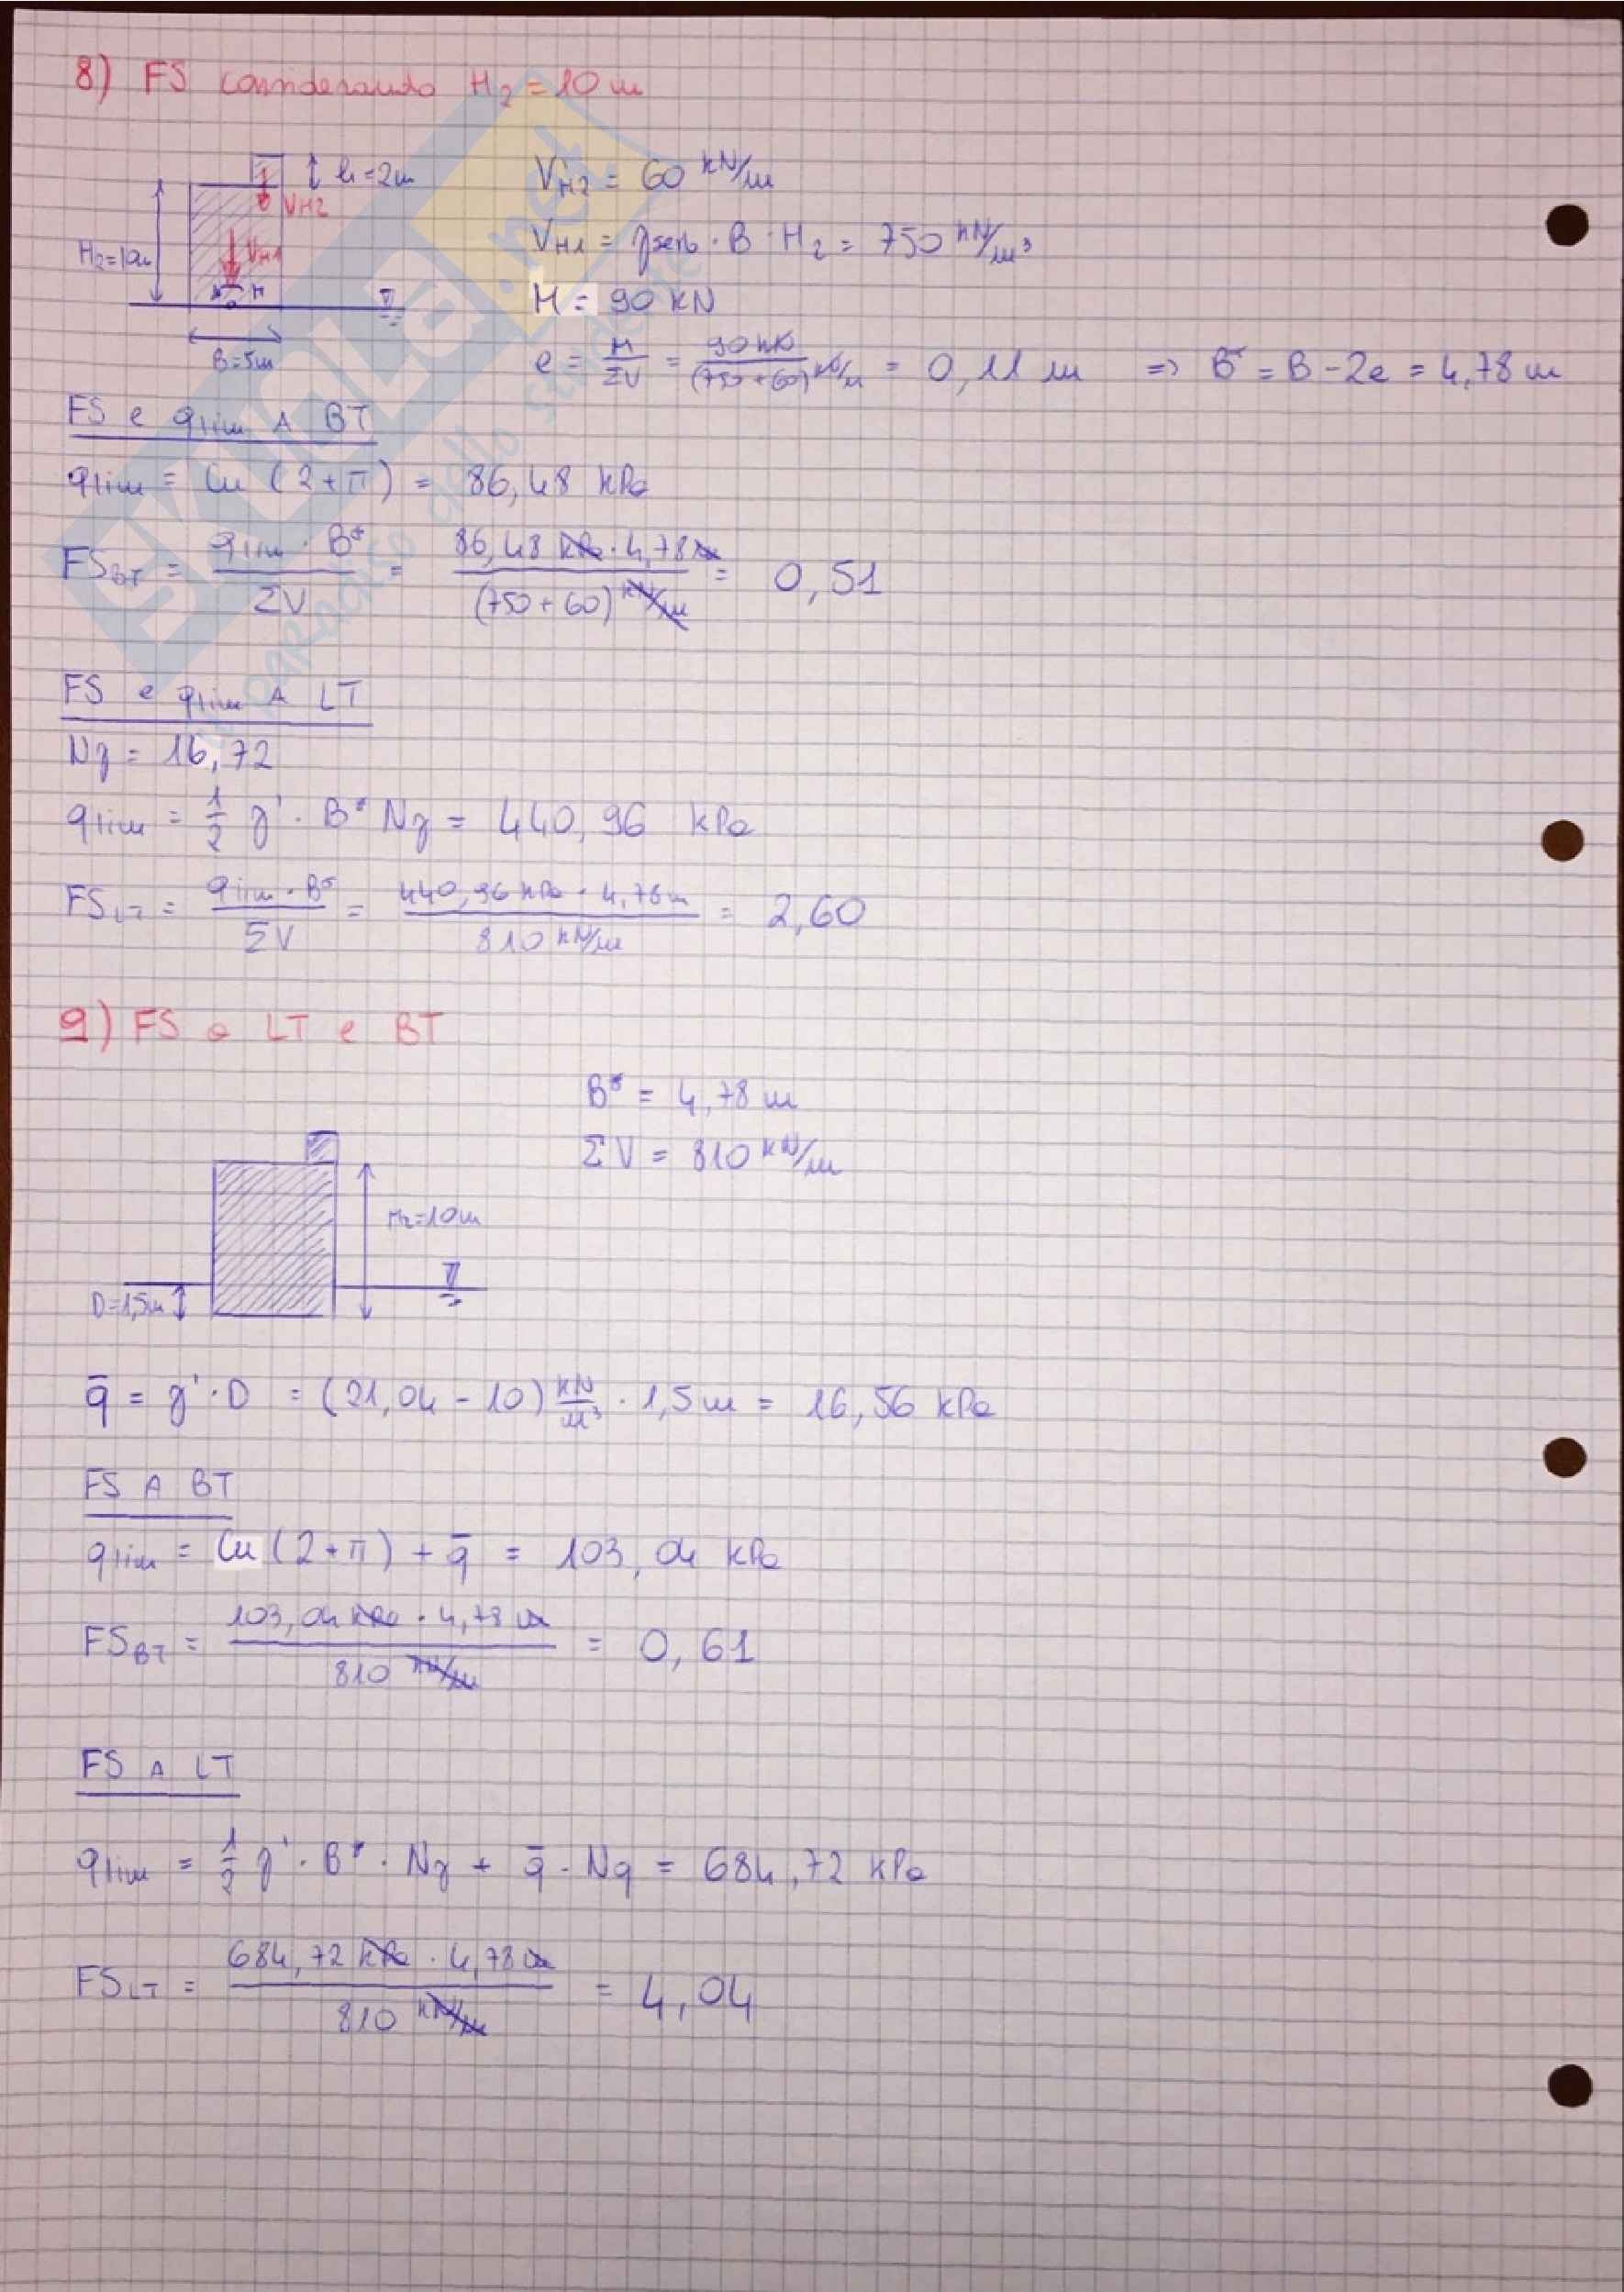 8) FS considerando H2 = 10 m
h = 2m
VH2
H2=10m
VH1
M
B=5m
VH2 = 60 kN/m
VH1 = γserb · B · H2 = 750 kN/m³
M = 90 kN
e = M/ΣV = 90 kN/(750+60) kN/m = 0,11 m => B* = B - 2e = 4,78 m
FS e qlim A BT
qlim = Cu (2+π) = 86,48 kPa
FSBT = qlim · B*/ΣV = 86,48 kPa · 4,78 m/(750+60) kN/m = 0,51
FS e qlim A LT
Nγ = 16,72
qlim = 1/2 γ' · B* Nγ = 440,96 kPa
FSLT = qlim · B*/ΣV = 440,96 kPa · 4,78 m/810 kN/m = 2,60
9) FS a LT e BT
B* = 4,78 m
ΣV = 810 kN/m
H2=10m
D=1,5m
q̄ = γ' · D = (21,04 - 10) kN/m³ · 1,5 m = 16,56 kPa
FS A BT
qlim = Cu (2+π) + q̄ = 103,04 kPa
FSBT = 103,04 kPa · 4,78 m/810 kN/m = 0,61
FS A LT
qlim = 1/2 γ' · B* · Nγ + q̄ · Nq = 684,72 kPa
FSLT = 684,72 kPa · 4,78 m/810 kN/m = 4,04
SKUOLA.net